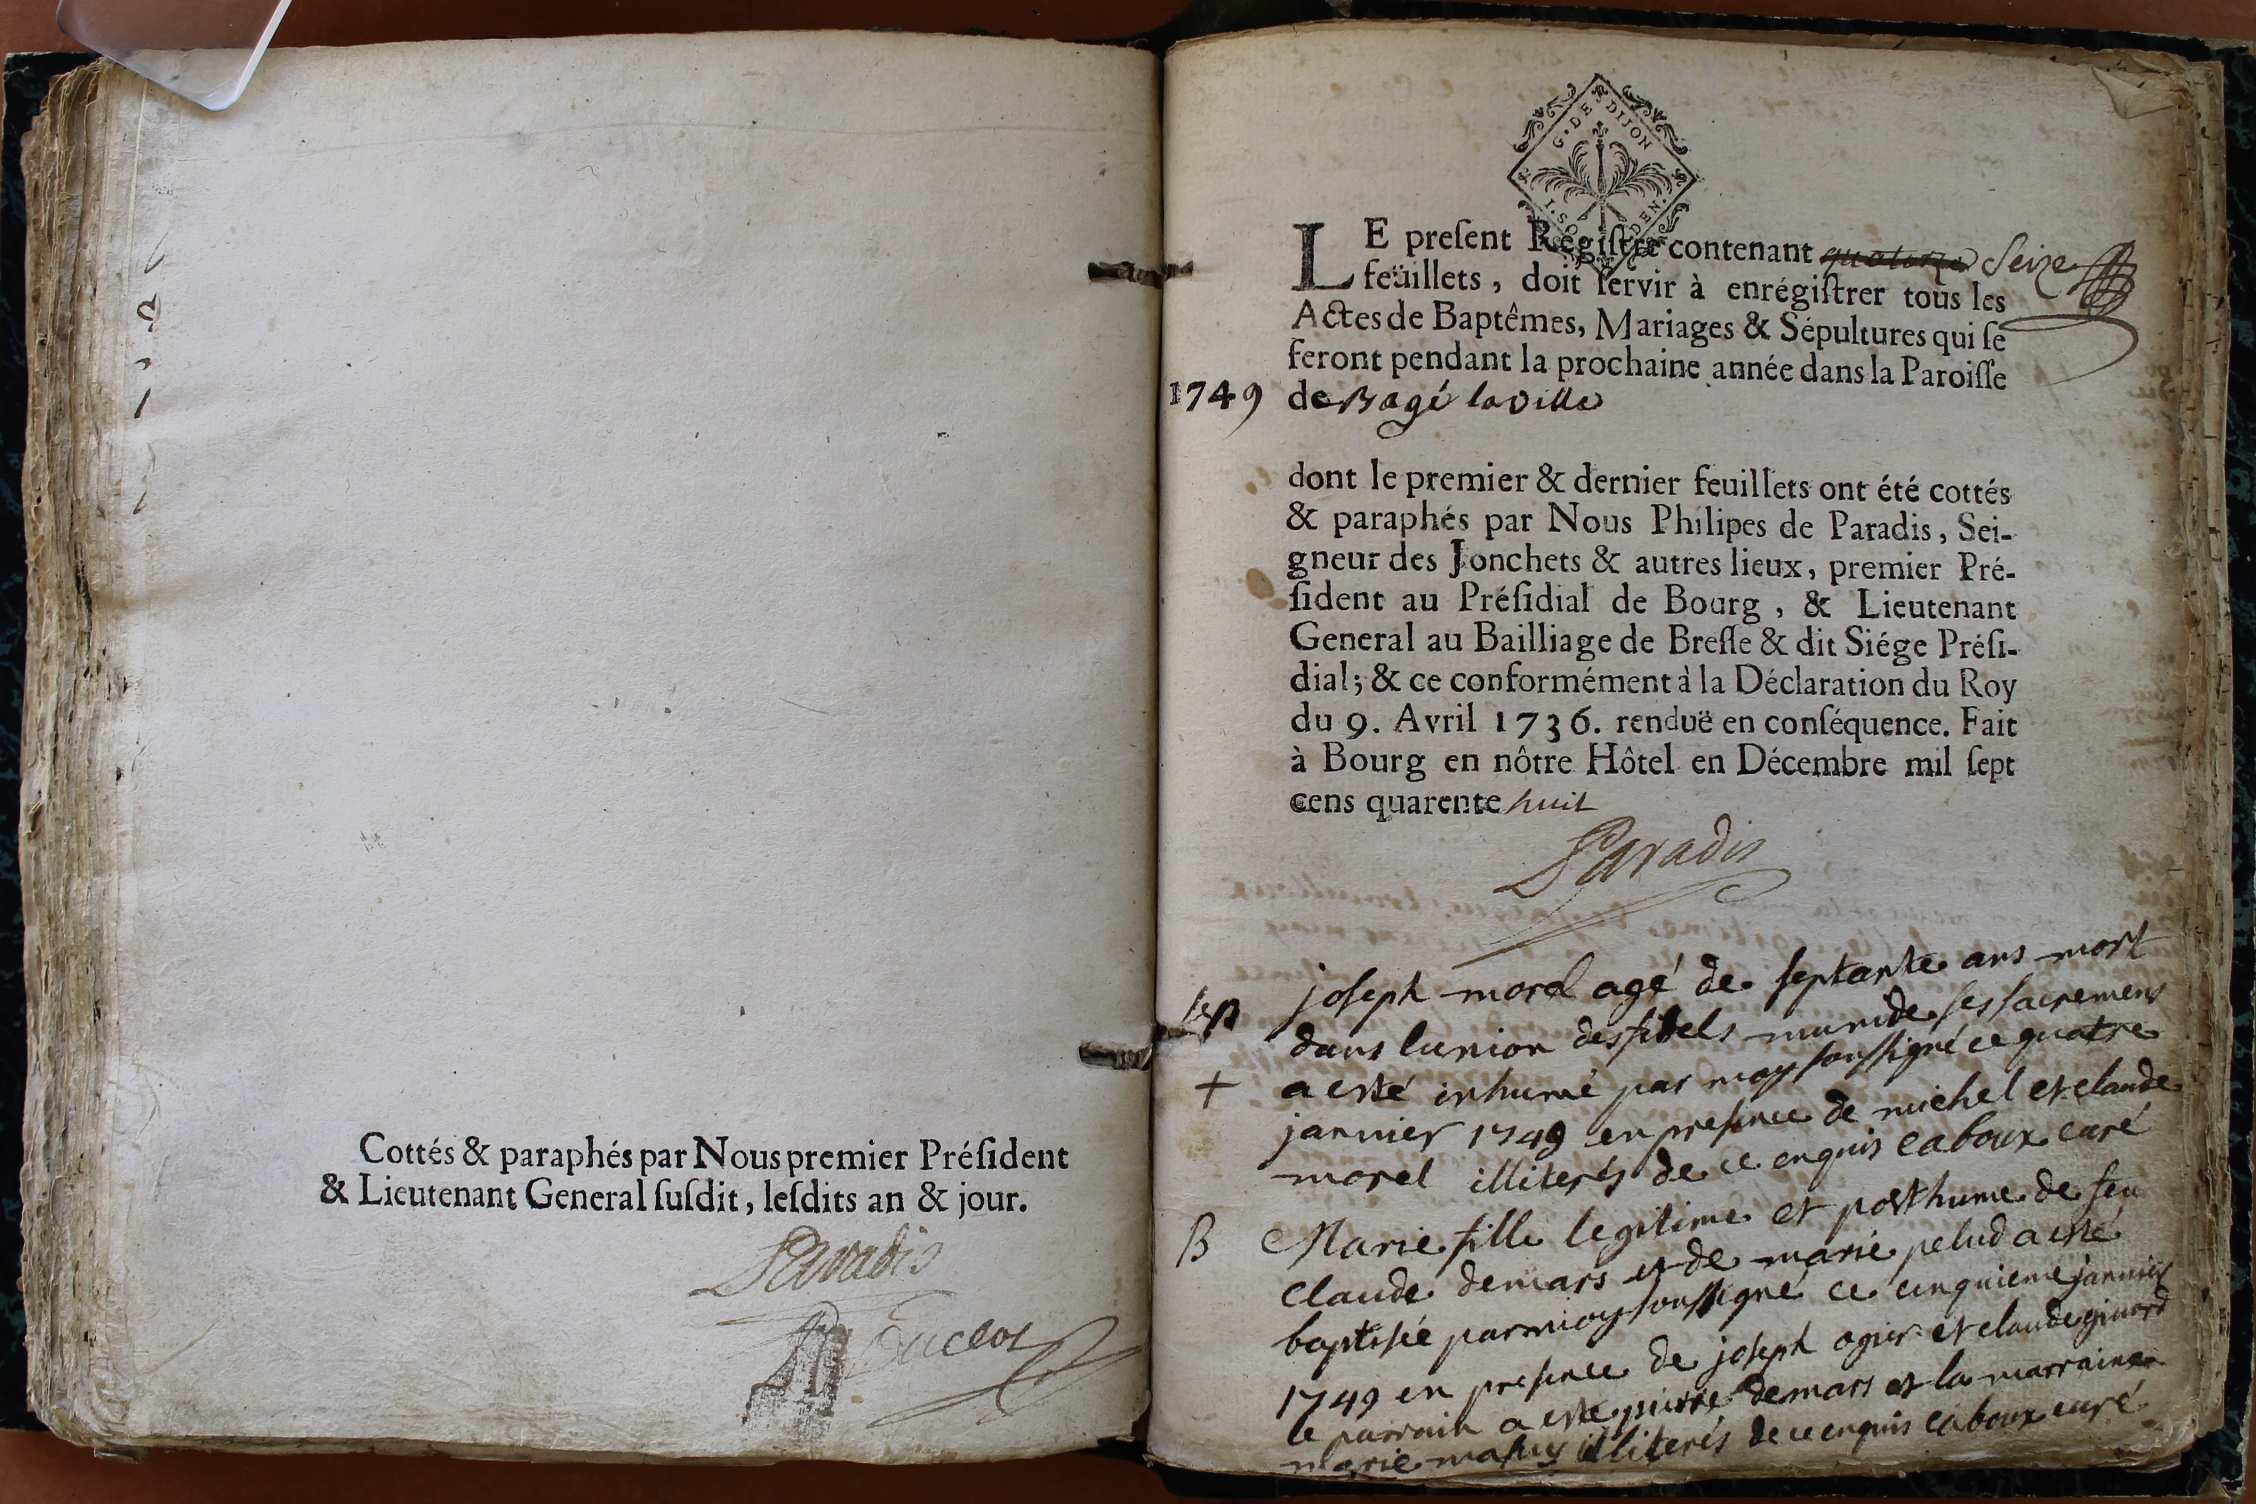 Cottés & paraphés par Nous premier Préſident
& Lieutenant General ſuſdit, leſdits an & jour.
Paradis
Duclos
G. DE DIJON
LE preſent Régiſtre contenant quatorze Seize
feüillets, doit ſervir à enrégiſtrer tous les
Actes de Baptêmes, Mariages & Sépultures qui ſe
feront pendant la prochaine année dans la Paroiſſe
1749 de Bagé la ville
dont le premier & dernier feuillets ont été cottés
& paraphés par Nous Philipes de Paradis, Sei-
gneur des Jonchets & autres lieux, premier Pré-
ſident au Préſidial de Bourg, & Lieutenant
General au Bailliage de Breſſe & dit Siége Préſi-
dial; & ce conformément à la Déclaration du Roy
du 9. Avril 1736. renduë en conſéquence. Fait
à Bourg en nôtre Hôtel en Décembre mil ſept
cens quarente huit
Paradis
joseph morel agé de septante ans mort
dans lunion des fidels muni de ses sacremens
+ a esté inhumé par moy soussigné ce quatre
janvier 1749 en presence de michel et claude
morel illiterés de ce enquis caboux curé
B Marie fille legitime et posthume de feu
claude demars et de marie pelud a esté
baptisée par moy soussigné ce cinquieme janvier
1749 en presence de joseph ogier et claude
le parrain a esté pierre demars et la marraine
marie illiterés de ce enquis caboux curé